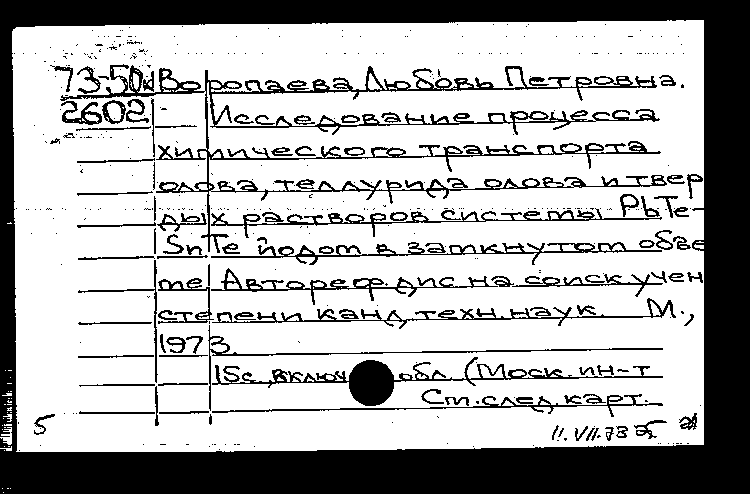 73-50к Воропаева, Любовь Петровна.
2602 Исследование процесса
химического транспорта
олова, теллурида олова и твер
дых растворов системы PbTe-
SnTe йодом в замкнутом объе
ме Автореф. дис на соиск учен
степени канд, техн. наук. М.,
1973.
15с., включ обл. (Моск. ин-т
См. след. карт.
5 11.VII.73